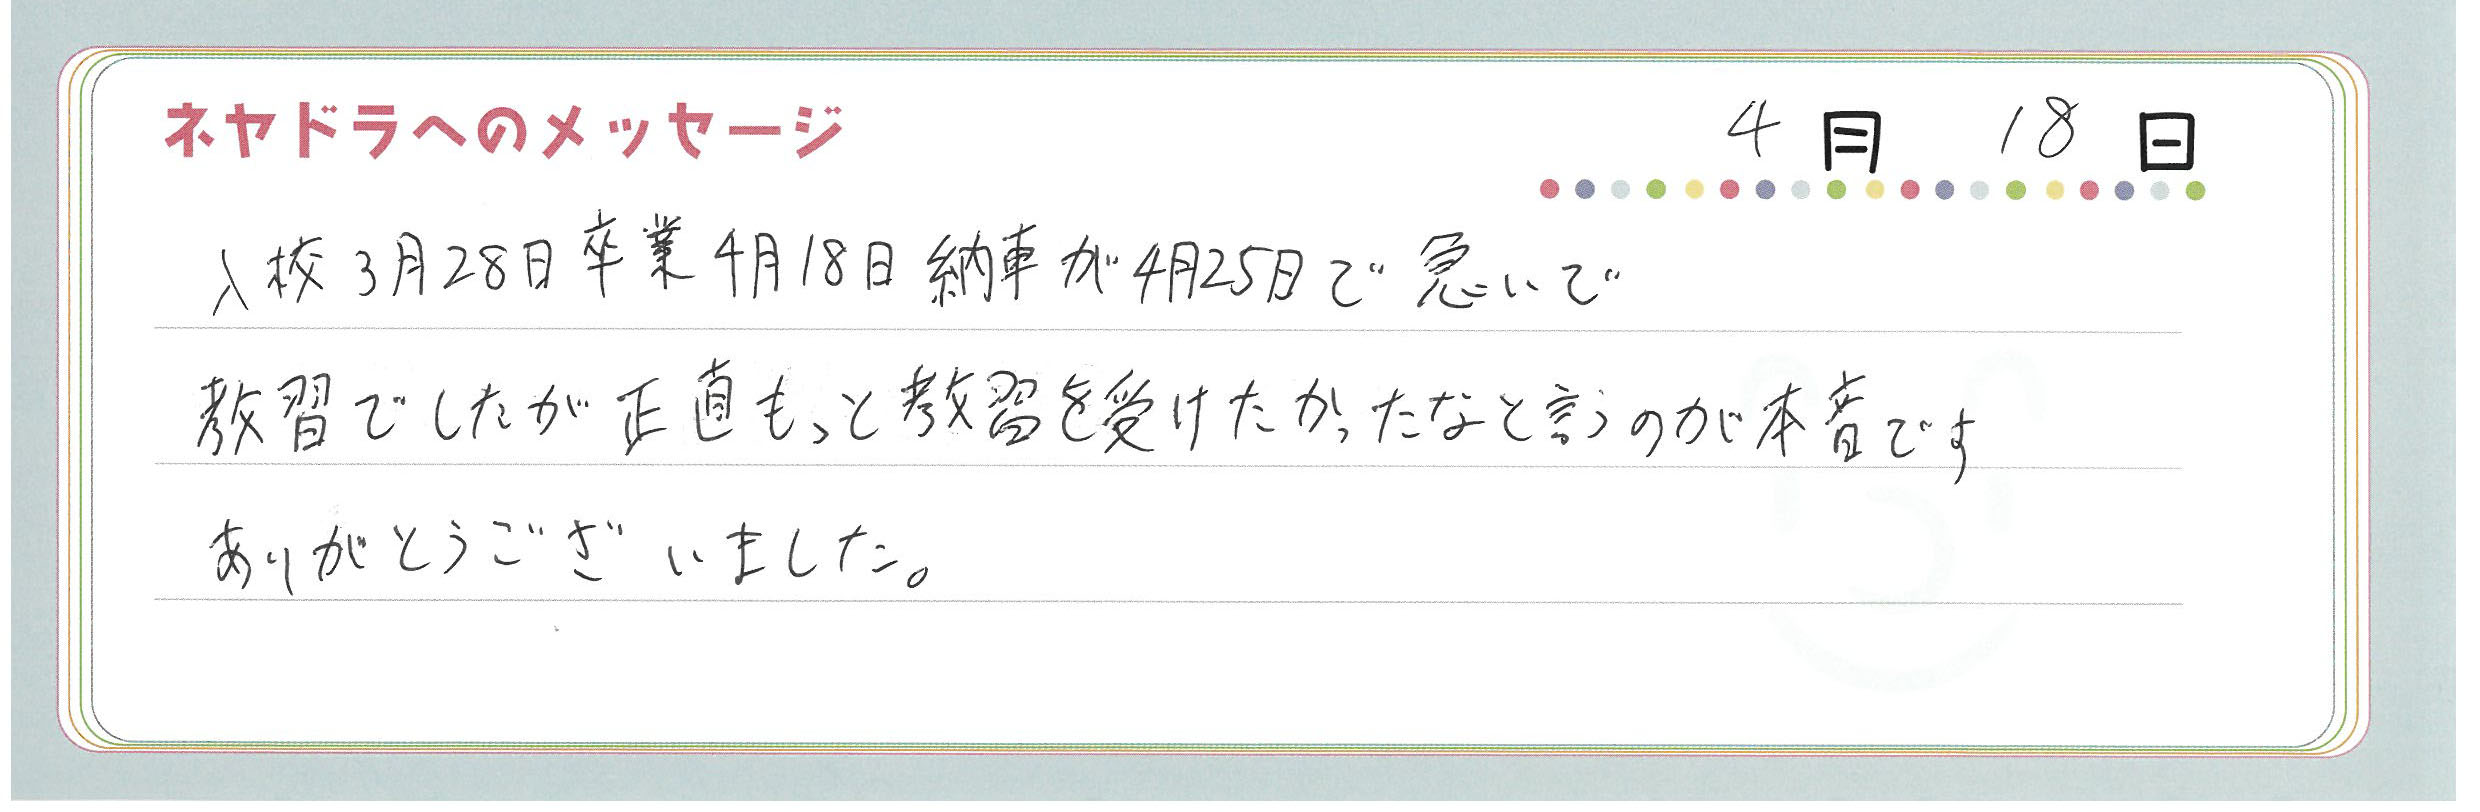 ネヤドラへのメッセージ
4月 18日
入校3月28日卒業4月18日納車が4月25日で急いで
教習でしたが正直もっと教習を受けたかったなと言うのが本音です
ありがとうございました。